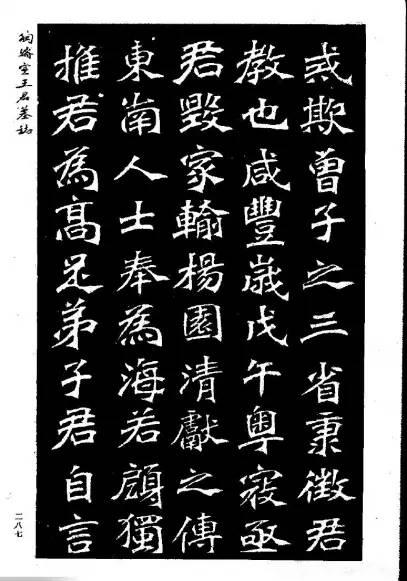 或欺曾子之三省秉徵君
教也咸豐歲戊午粵寇亟
君毀家輸楊園清獻之傳
東南人士奉為海若顧獨
推君為髙足弟子君自言
陶濬宣王君墓誌
二八七